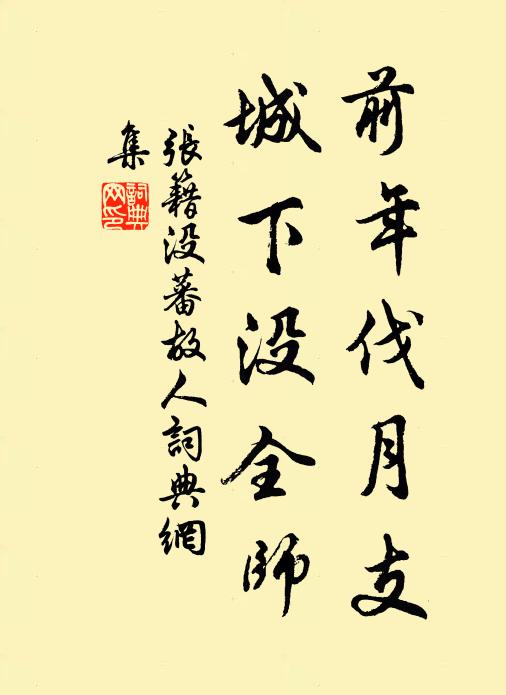 前年伐月支
城下没全師
張籍没蕃故人詞典網
集
詞典
网印